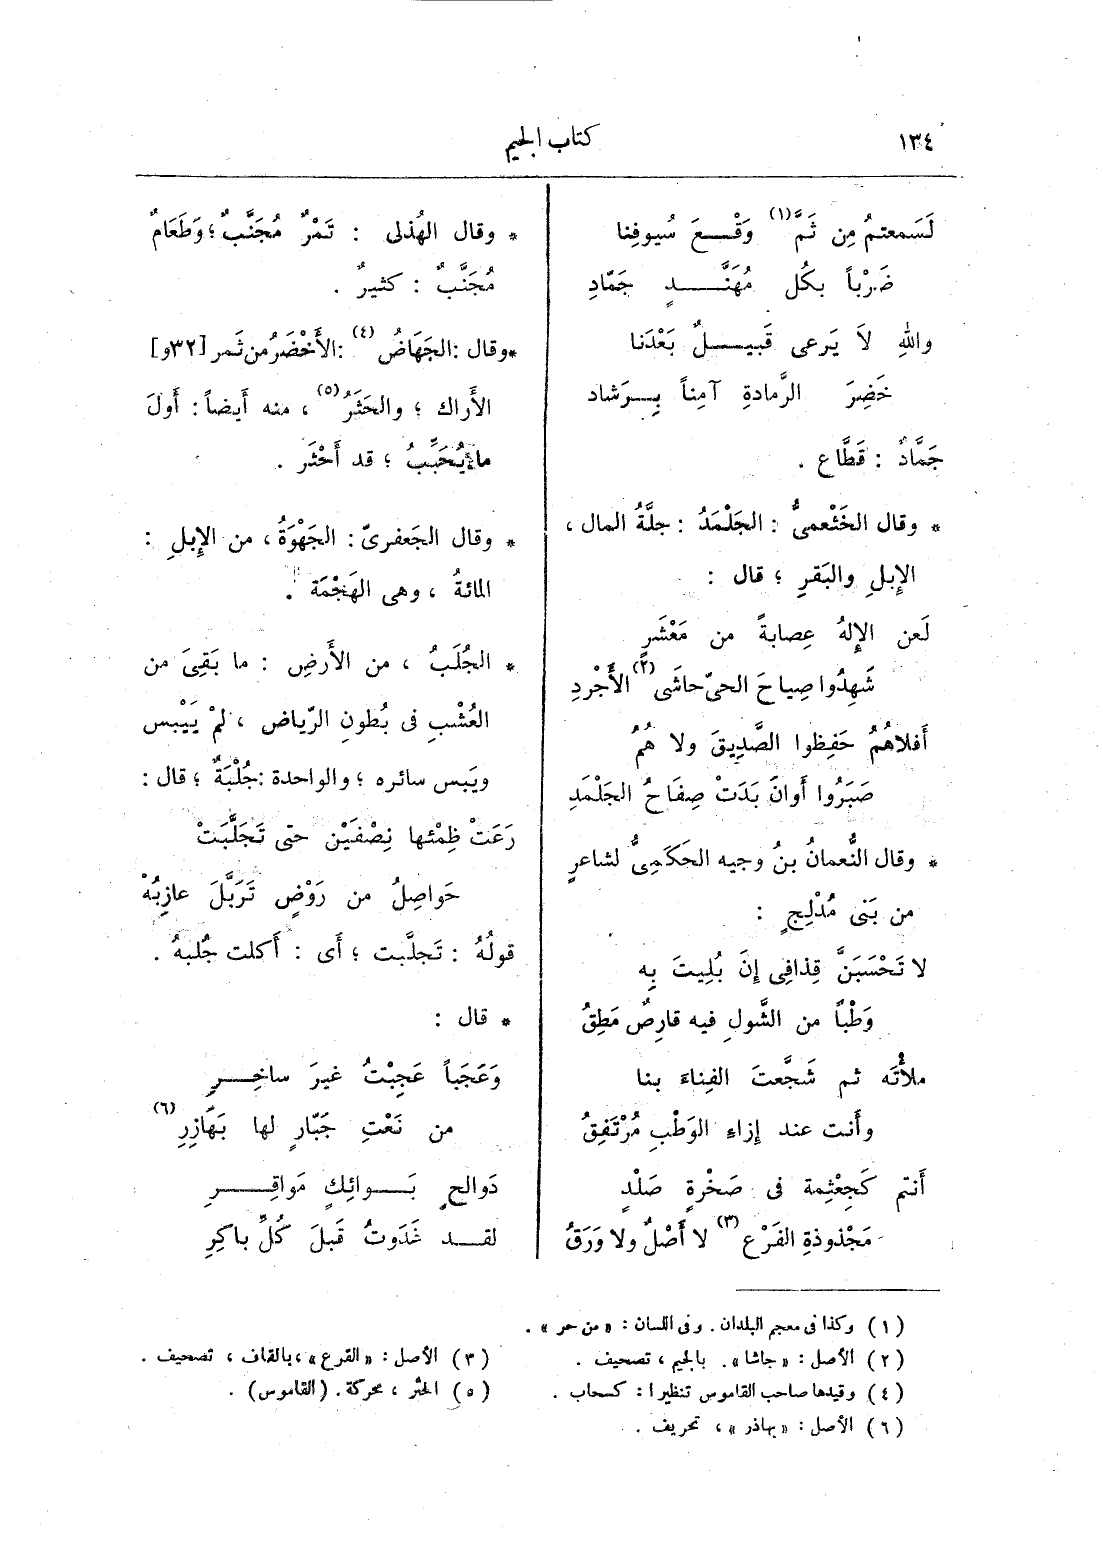 ١٣٤
كتاب الجيم
لَسَمعتمُ مِن ثَمَّ (١) وَقْعَ سُيوفِنا
ضَرْباً بكُل مُهَنَّدٍ جَمّادِ
واللهِ لاَ يَرعى قَبيلٌ بَعْدَنا
خَضِرَ الرَّمادةِ آمِناً بِرَشاد
جَمَّادٌ : قَطَّاع .
* وقال الخَثْعمىُّ : الجَلْمَدُ : جلَّةُ المال ،
الإبلِ والبَقرِ ؛ قال :
لَعن الإلهُ عِصابةً من مَعْشَرٍ
شَهِدُوا صِياحَ الحىّ حاشَى (٢) الأَجْردِ
أَفلاهُمُ حَفِظوا الصَّدِيقَ ولا هُمُ
صَبَرُوا أَوانَ بَدَتْ صِفَاحُ الجَلْمَدِ
* وقال النُّعمانُ بنُ وجيه الحَكَمِىُّ لشاعرٍ
من بَنى مُدْلِجٍ :
لا تَحْسَبَنَّ قِذافِى إِنَ بُلِيتَ بِه
وَطْباً من الشَّولِ فيه قارِصٌ مَطِقُ
ملأْتَه ثم شَجَّعتَ الفِناءَ بنا
وأَنت عند إزاءِ الوَطْبِ مُرْتَفِقُ
أَنتم كَجِعْثِمة فى صَخْرةٍ صَلْدٍ
مَجْذوذةِ الفَرْع (٣) لا أَصْلٌ ولا وَرَقُ
* وقال الهُذلى : تَمْرٌ مُجَنَّبٌ ؛ وَطَعَامٌ
مُجَنَّبٌ : كثيرٌ .
* وقال : الجَهَاضُ (٤) : الأَخْضَرُ من ثَمر [٣٢و]
الأَراك ؛ والحَثَرُ (٥) ، منه أَيضاً : أَولَ
ما يُحَبِّبُ ؛ قد أَحْثَر .
* وقال الجَعفرىّ : الجَهْوَةُ ، من الإِبلِ :
المائةُ ، وهى الهَجْمَة .
* الجُلَبُ ، من الأَرضِ : ما بَقِىَ من
العُشْبِ فى بُطونِ الرّياض ، لمْ يَيْبس
ويَبس سائره ؛ والواحدة : جُلْبَةٌ ؛ قال :
رَعَتْ ظِمْئها نِصْفَيْن حتى تَجَلَّبَتْ
حَواصِلُ من رَوْضٍ تَرَبَّلَ عازِبُهْ
قولُهُ : تَجلَّبت ؛ أَى : أَكلت جُلبهُ .
* قال :
وَعَجَباً عَجِبْتُ غيرَ ساخِرِ
من نَعْتِ جَبّارٍ لها بَهَازِرِ (٦)
دَوالحٍ بَوائِكٍ مَواقِرِ
لقد غَدَوتُ قَبلَ كُلِّ باكِرِ
(١) وكذا فى معجم البلدان . وفى اللسان : « من حر » .
(٢) الأصل : « جاشا » . بالجيم ، تصحيف .
(٣) الأصل : « القرع » ، بالقاف ، تصحيف .
(٤) وقيدها صاحب القاموس تنظيرا : كسحاب .
(٥) الحثر ، محركة . (القاموس) .
(٦) الأصل : « بهاذر » ، تحريف .